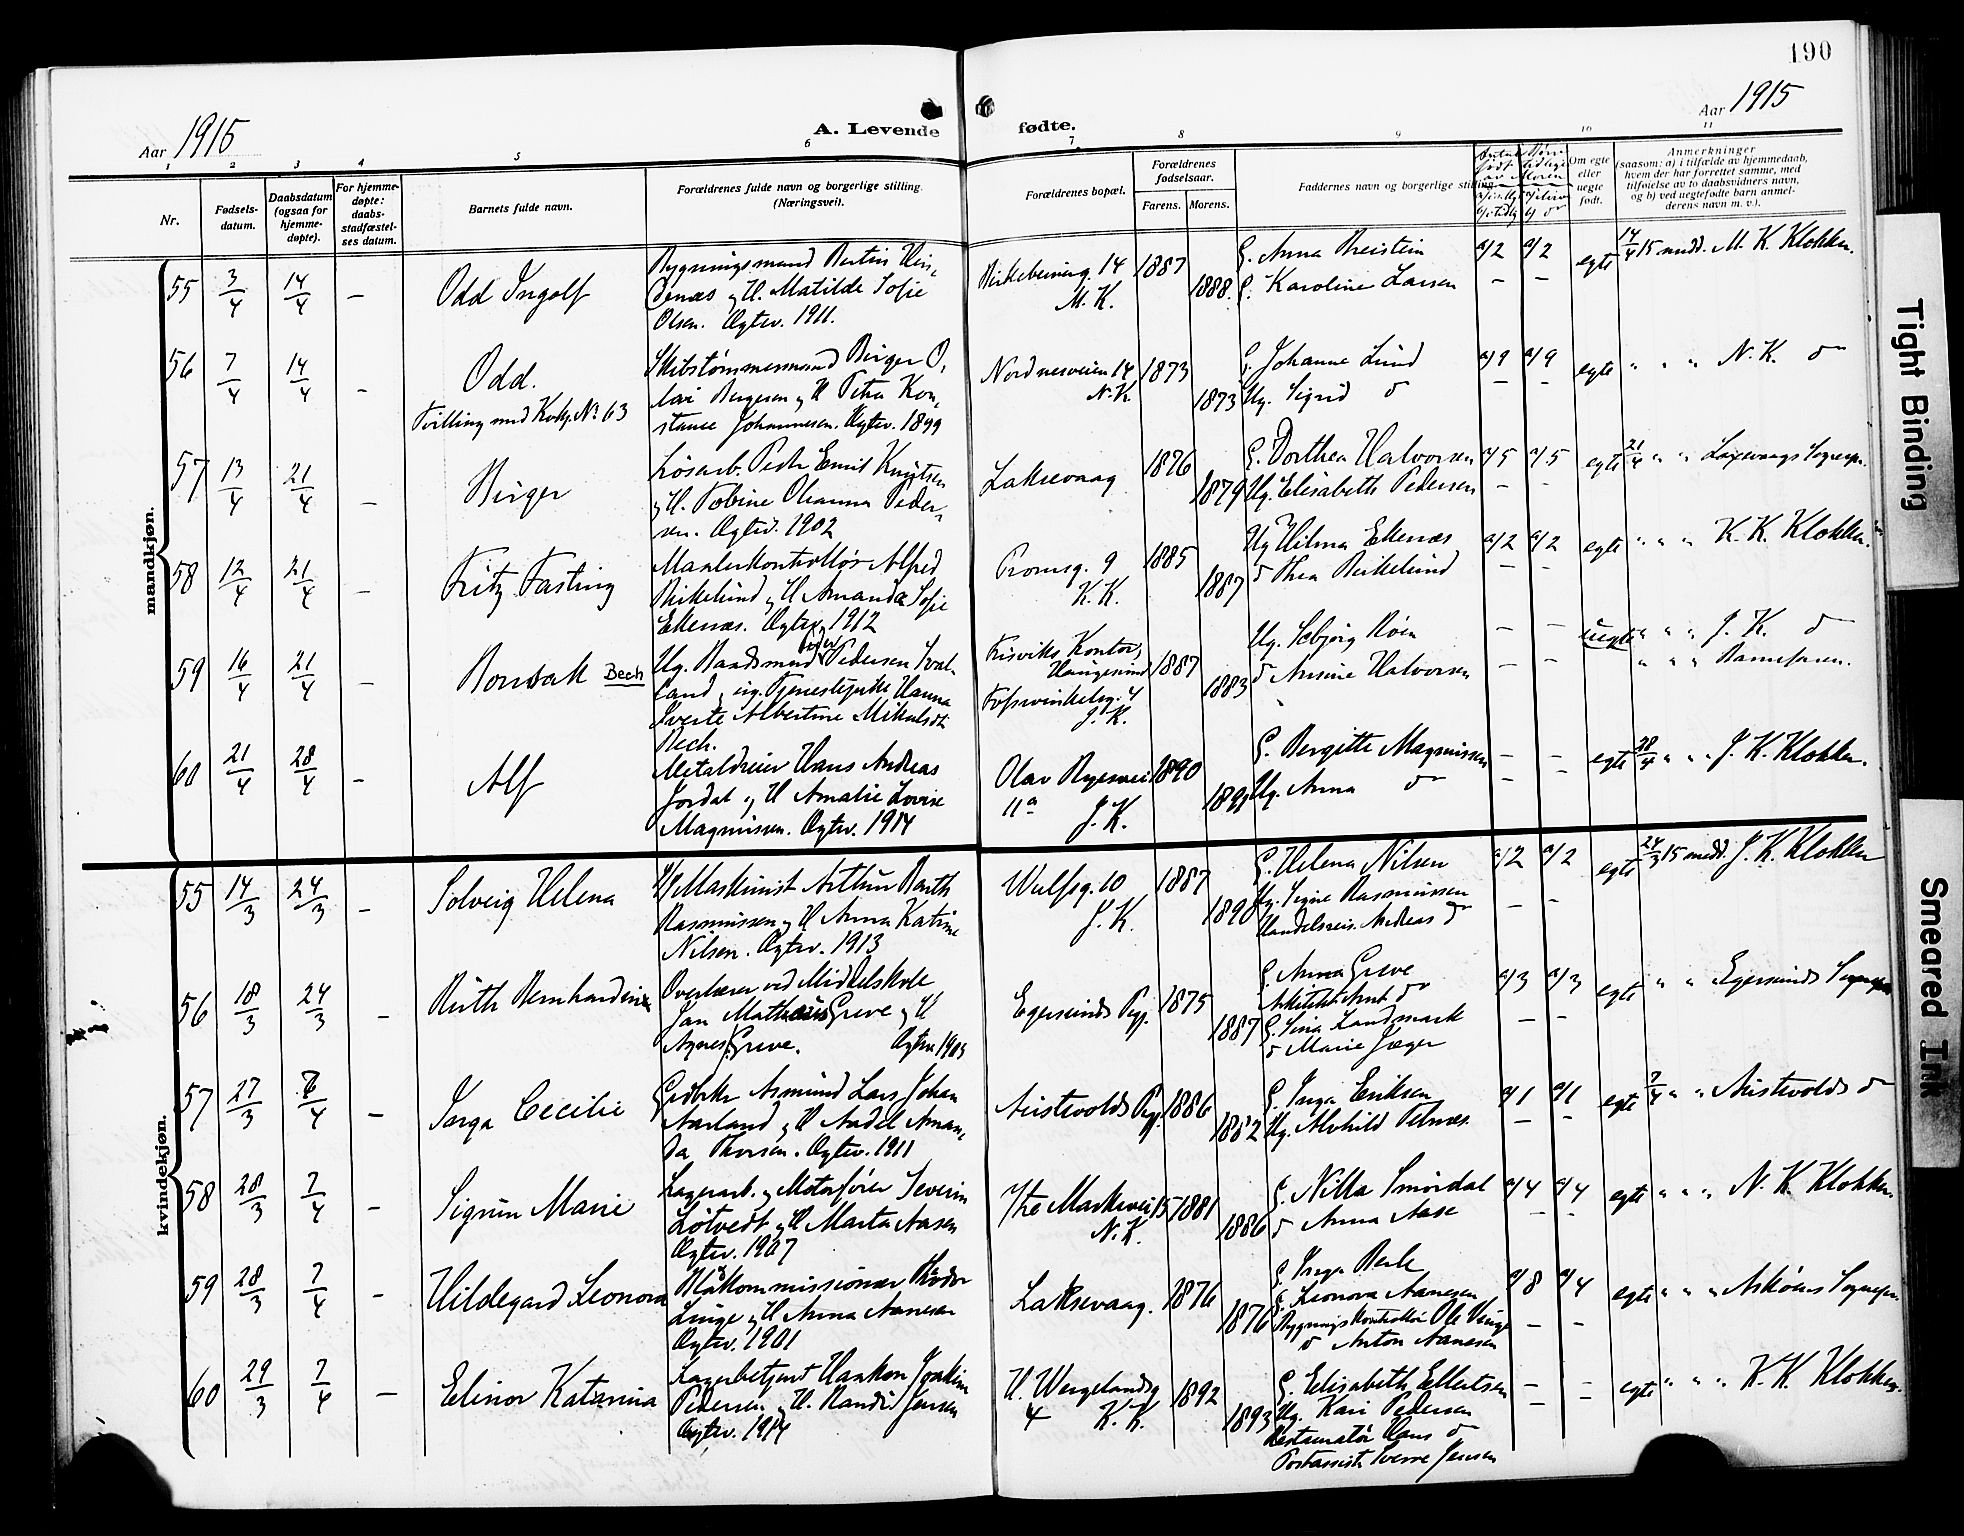 190
Aar 1915
A. Levende fødte.
Aar 1915
1 2 3 4 5 6 7 8 9 10 11
Nr.
Fødsels-
datum.
Daabsdatum
(ogsaa for
hjemme-
døpte).
For hjemme-
døpte:
daabs-
stadfæstel-
ses datum.
Barnets fulde navn.
Forældrenes fulde navn og borgerlige stilling.
(Næringsvei).
Forældrenes bopæl.
Forældrenes
fødselsaar.
Farens. Morens.
Faddernes navn og borgerlige stilling.
Om egte
eller
uegte
født.
Anmerkninger
(saasom: a) i tilfælde av hjemmedaab,
hvem der har forrettet samme, med
tilføielse av to daabsvidners navn,
og b) ved uegtefødte barn anmel-
derens navn m. v.).
mandkjøn.
55 3/4 14/4 – Odd Ingolf
Bygningsmand Bertin
og H. Matilde Sofie
Olsen. Egtev. 1911.
Birkebeinerg. 14
M. K.
1887 1888
G. Anna Breistein
G. Karoline Larsen
a/2 a/2 egte 14/4 15 medd. M. K. Klokker.
56 7/4 14/4 – Odd.
Tvilling med Kvkj. No 63
Skibstømmermand Birger O-
lai Bergesen og H. Petra Kon-
stance Johannesen. Egtev. 1899
Nordnesveien 14
N. K.
1873 1873
G. Johanne Lund
Ug. Sigrid do
a/9 a/9 egte " " " N. K. do
57 13/4 21/4 – Birger
Løsarb. Peder Emil Knutsen
og H. Tobine Oleanna Peder-
sen. Egtev. 1902
Laksevaag
1876 1879
G. Dorthea Halvorsen
Ug. Elisabeth Pedersen
a/5 a/5 egte 21/4 " " Laxevaags Sognepr.
58 12/4 21/4 – Fritz Fasting
Maalerkontrollør Alfred
Birkelund og H. Amanda Sofie
Ekenæs. Egtev. 1912
Tromsg. 9
K. K.
1885 1887
Ug. Hilma Ekenæs
do Thea Birkelund
a/2 a/2 egte " " " K. K. Klokker.
59 16/4 21/4 – Bech
Ug. Baadsmand Peder Pedersen
land og ug. Tjenestepike Hanna
Sverte Albertine Mikalsdt.
Bech.
Risviks Kontor,
Haugesund
Fosswinkelsg. 4
J. K.
1887 1883
Ug.
do Arsine Halvorsen
– – uegte " " " J. K. do
" " " Barnefaren.
60 21/4 28/4 – Alf
Metaldreier Hans Andreas
Jordal og H. Amalie Lovise
Magnussen. Egtev. 1914
Olav Ryesvei
11a J. K.
1890 1891
G. Bergitte Magnussen
Ug. Anna do
– – egte 28/4 " " J. K. Klokker.
kvindekjøn.
55 14/3 24/3 – Solveig Helena
Maskinist Arthur Barth
Rasmussen og H. Anna Katrine
Nilsen. Egtev. 1913
Wulfsg. 10
J. K.
1887 1890
G. Helena Nilsen
Ug. Signe Rasmussen
Handelsreis. Andreas do
a/2 a/2 egte 24/3 15 medd. J. K. Klokker
56 18/3 24/3 – Ruth Bernhardine
Overlærer ved Middelskole
Jan Mathæus Greve og H.
Agnes Greve. Egtev. 1909
Egersunds Pgj.
1875 1887
G. Anna Greve
Arkitekt Arnt do
G. Sina Landmark
do Marie Jæger
a/3 a/3 egte " " Egersunds Sognepr.
57 27/3 7/4 – Inga Cecilie
Gaardbr. Asmund Lars Johan
Aarland og H. Aadel Aman-
da Thorsen. Egtev. 1911
Austevolds Pgj.
1886 1882
G. Inga Eriksen
Ug. Alvhild
a/1 a/1 egte 7/4 " " Austevolds do
58 28/3 7/4 – Sigrun Marie
Lagerarb. og Motorfører Severin
Løtvedt og H. Marta Aasen
Egtev. 1907
Ytre Markevei 15
N. K.
1881 1886
G. Nilla Smørdal
do Anna Aase
a/4 a/4 egte " " " N. K. Klokker.
59 28/3 7/4 – Hildegard Leonora
Linge og H. Anna Aanesen
Egtev. 1901
Laksevaag.
1876 1876
G. Inga Berle
G. Leonora Aanesen
Bygningskontrollør Ole Vinge
do Anton Aanesen
a/8 a/4 egte " " " Askøens Sognepr.
60 29/3 7/4 – Elinor Katarina
Lagerbetjent Haakon Joakim
Pedersen og H. Randi Jensen
Egtev. 1914
H. Wergelandsg.
4 K. K.
1892 1893
G. Elisabeth Ellertsen
Ug. Kari Pedersen
Restauratør Hans do
Postassist. Sverre Jensen
– – egte " " " K. K. Klokker.
Tight Binding
Smeared Ink